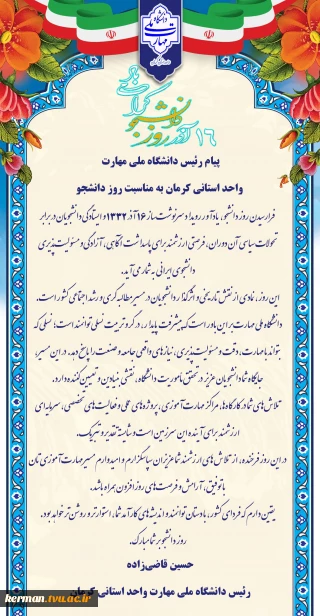 دانشگاه ملی مهارت
۱۶ آذر روز دانشجو گرامی باد
پیام رئیس دانشگاه ملی مهارت
واحد استانی کرمان به مناسبت روز دانشجو
فرارسیدن روز دانشجو، یادآور رویداد سرنوشت‌ساز ۱۶ آذر ۱۳۳۲ و ایستادگی دانشجویان در برابر
تحولات سیاسی آن دوران، فرصتی ارزشمند برای پاسداشت آگاهی، آزادگی و مسئولیت‌پذیری
دانشجوی ایرانی به شمار می‌آید.
این روز، نمادی از نقش تاریخی و اثرگذار دانشجویان در مسیر مطالبه‌گری و رشد اجتماعی کشور است.
دانشگاه ملی مهارت بر این باور است که پیشرفت پایدار، در گرو تربیت نسلی توانمند است؛ نسلی که
بتواند با مهارت، دقت و مسئولیت‌پذیری، نیازهای واقعی جامعه و صنعت را پاسخ دهد. در این مسیر،
جایگاه شما دانشجویان عزیز در تحقق مأموریت دانشگاه، نقشی بنیادین و تعیین‌کننده دارد.
تلاش‌های شما در کارگاه‌ها، مراکز مهارت‌آموزی، پروژه‌های عملی و فعالیت‌های تخصصی، سرمایه‌ای
ارزشمند برای آینده این سرزمین است و شایسته تقدیر و تبریک.
در این روز فرخنده، از تلاش‌های ارزشمند شما عزیزان سپاسگزارم و امیدوارم مسیر مهارت‌آموزی‌تان
با توفیق، آرامش و فرصت‌های روزافزون همراه باشد.
یقین دارم که فردای کشور، با دستان توانمند و اندیشه‌های کارآمد شما، استوارتر و روشن‌تر خواهد بود.
روز دانشجو بر شما مبارک.
حسین قاضی‌زاده
رئیس دانشگاه ملی مهارت واحد استانی کرمان
kerman.tvu.ac.ir